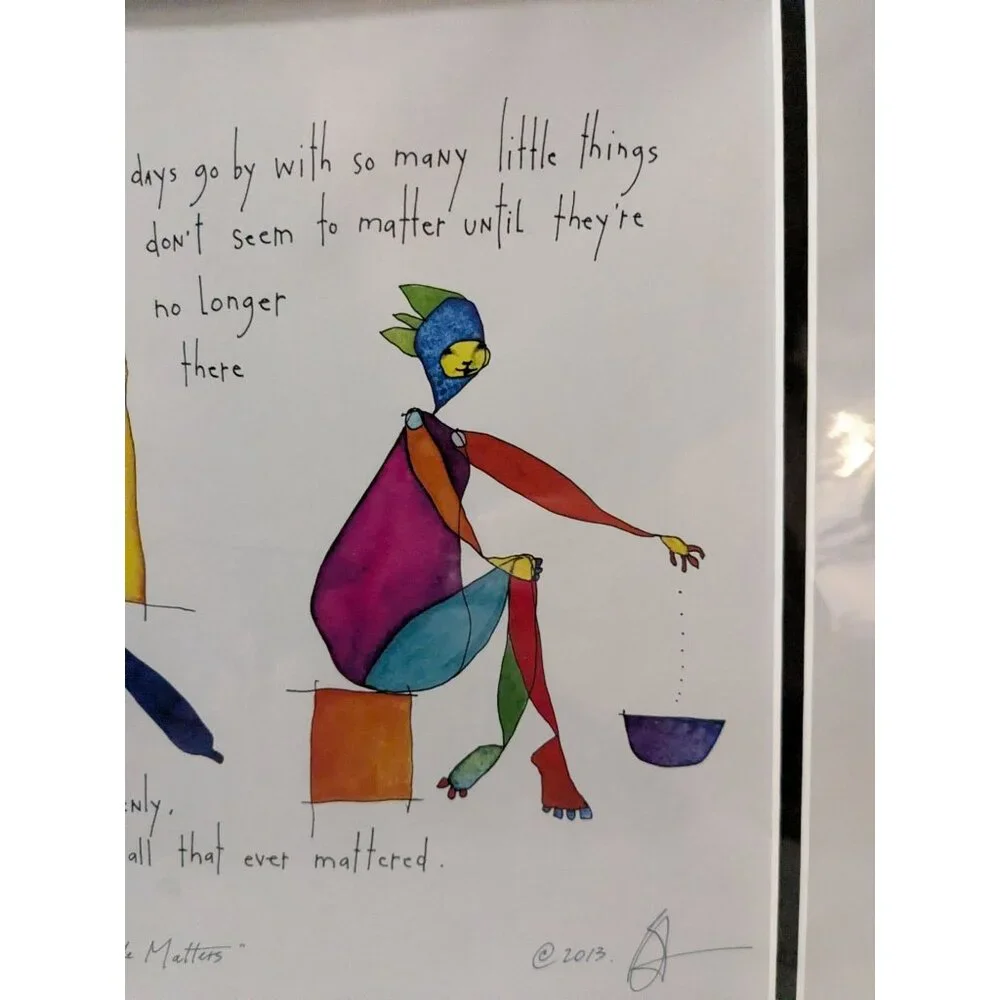 days go by with so many little things
don't seem to matter until they're
no longer
there
nly.
all that ever mattered.
Matters"
© 2013.